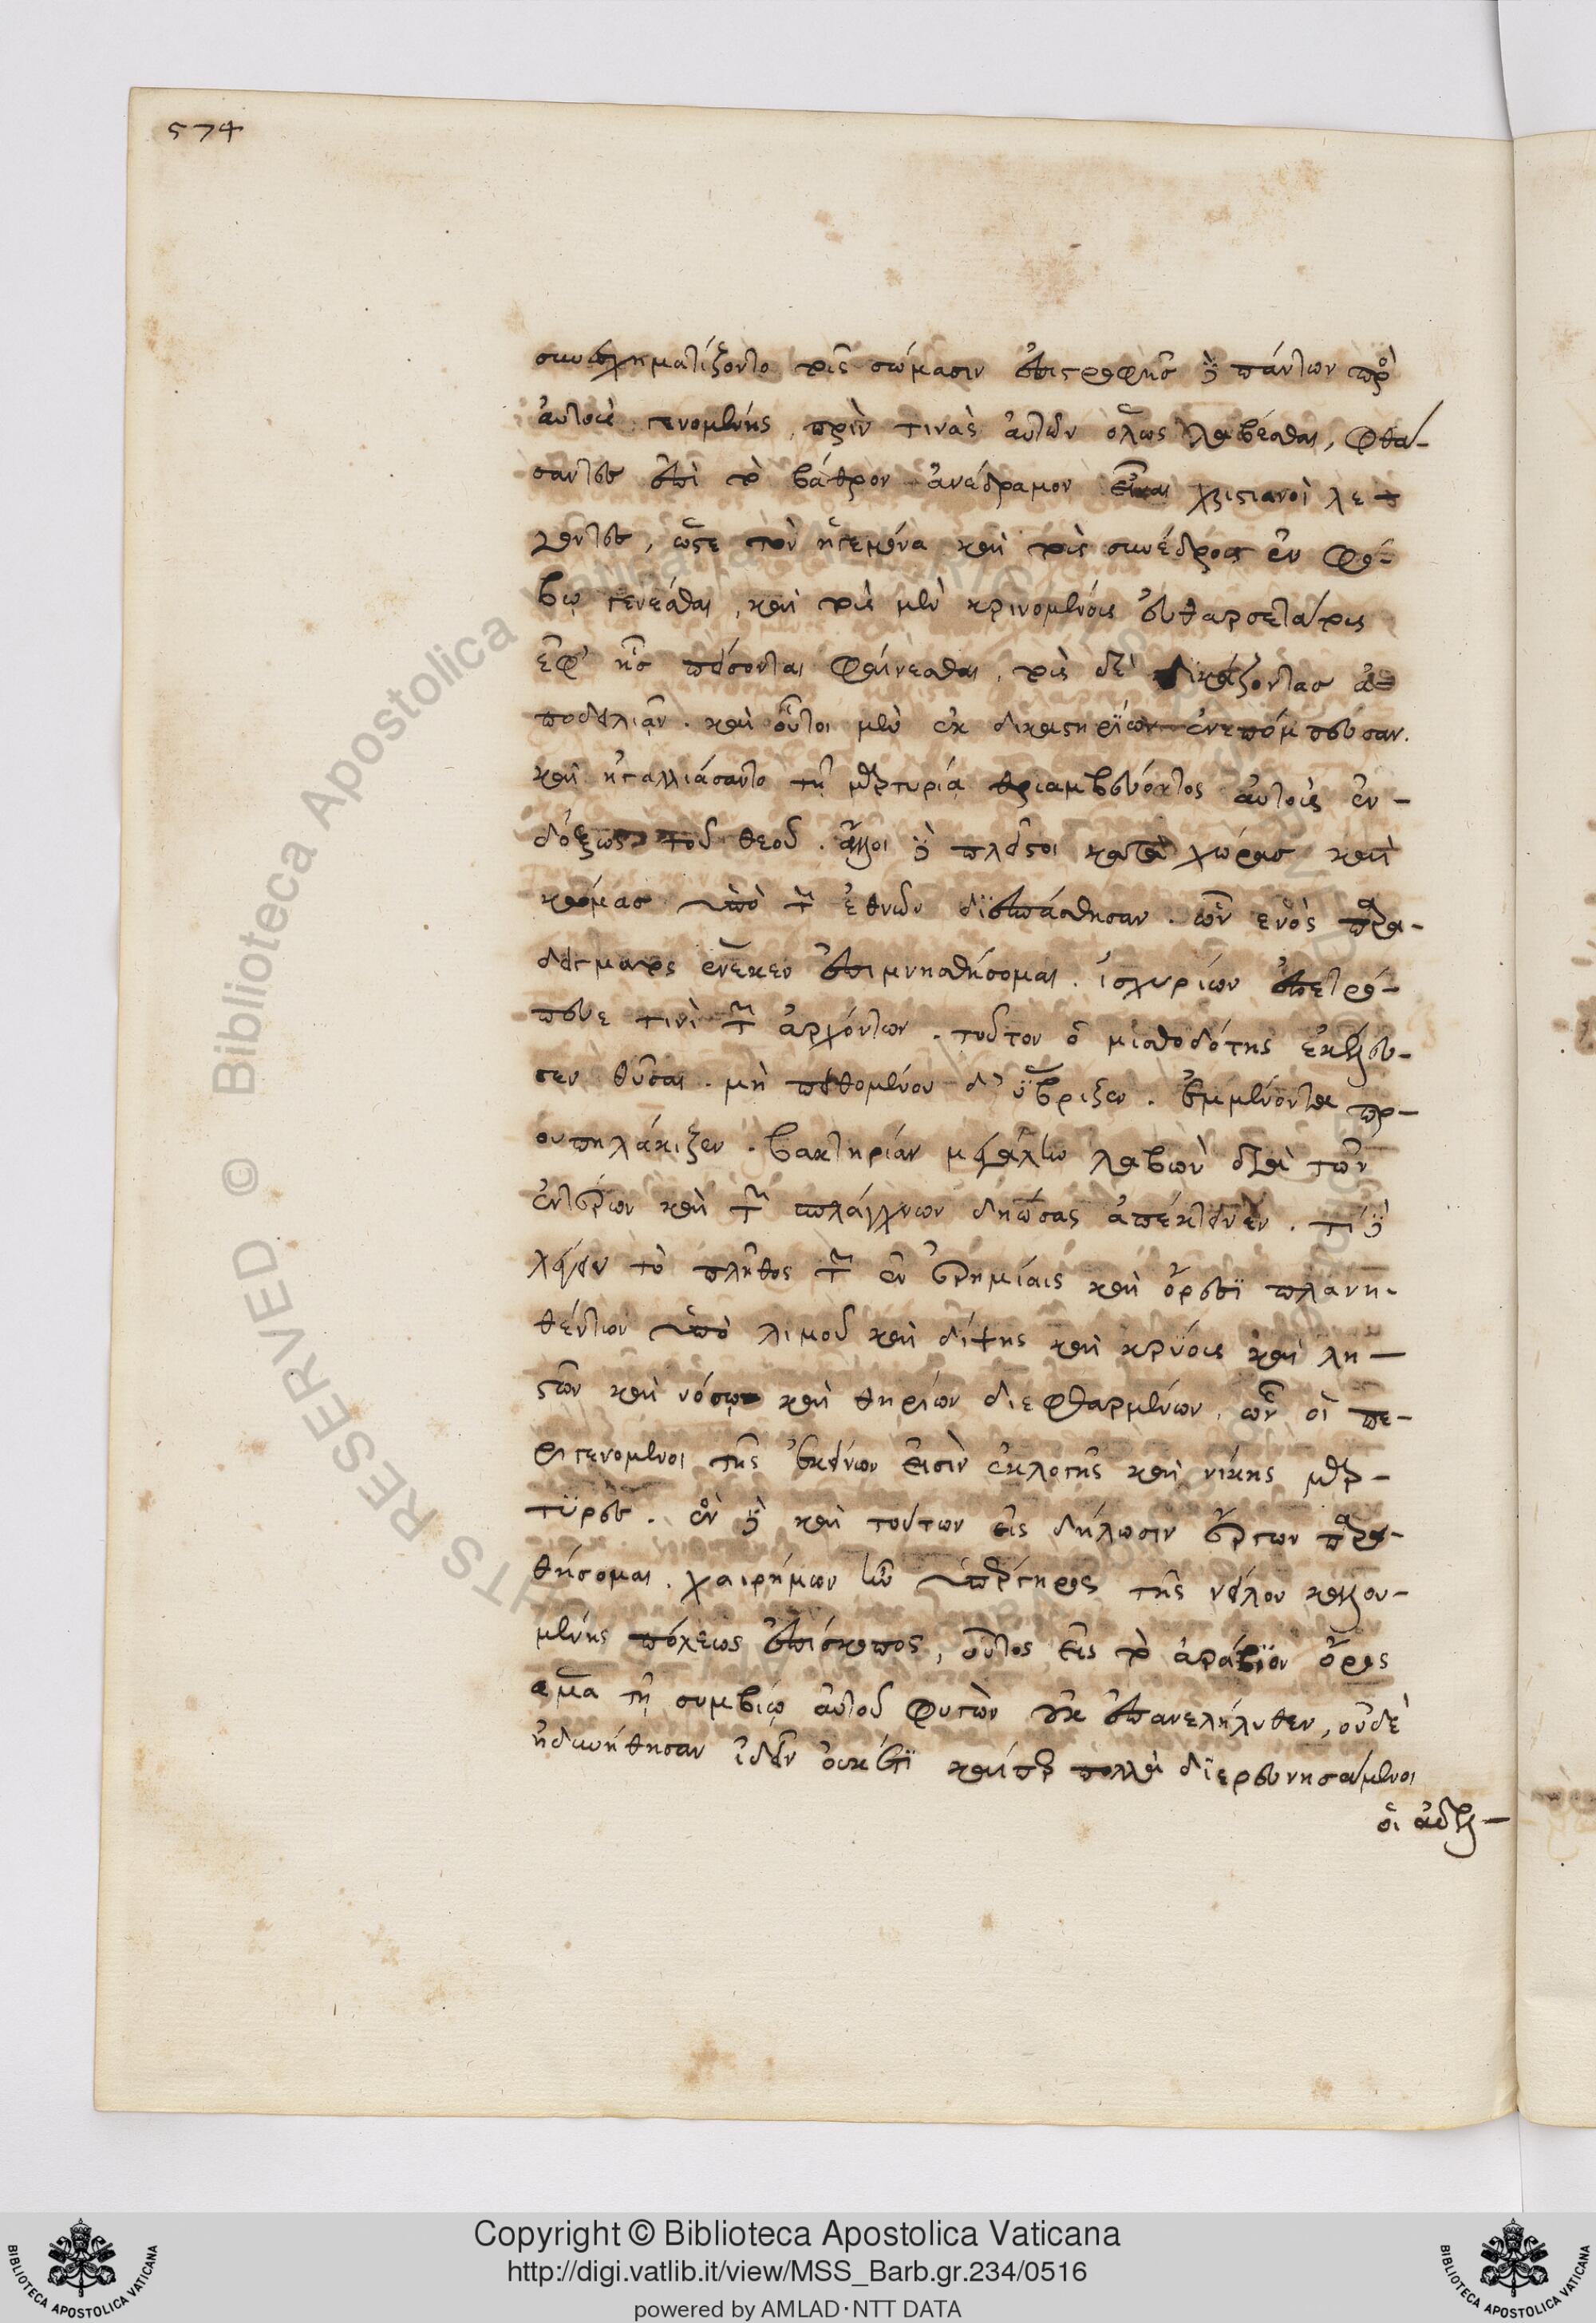 574
συνεσχηματίζοντο τοῖς σώμασιν ἐπιστροφῆς δὲ πάντων πρὸς
αὐτοὺς γενομένης, πρὶν τινὰς αὐτῶν ὅλως λαβέσθαι, φθά-
σαντες ἐπὶ τὸ βάθρον ἀνέδραμον εἶναι χριστιανοὶ λέ-
γοντες, ὥστε τὸν ἡγεμόνα καὶ τοὺς συνέδρους ἐν φό-
βῳ γενέσθαι, καὶ τοὺς μὲν κρινομένους εὐθαρσεστάτους
ἐφ' οἷς πείσονται φαίνεσθαι, τοὺς δὲ δικάζοντας ἀ-
ποδειλιᾶν. καὶ οὗτοι μὲν ἐκ δικαστηρίων ἐνεπόμπευσαν.
καὶ ἠγαλλιάσαντο τῇ μαρτυρίᾳ θριαμβεύοντος αὐτοὺς ἐν-
δόξως τοῦ θεοῦ. ἄλλοι δὲ πλεῖστοι κατὰ χώρας καὶ
κώμας ὑπὸ τῶν ἐθνῶν διεσπάσθησαν. ὧν ἑνὸς παρα-
δείγματος ἕνεκεν ἐπιμνησθήσομαι. ἰσχυρίων ἐπετρό-
πευε τινὶ τῶν ἀρχόντων. τοῦτον ὁ μισθοδότης ἐκέλευ-
σεν θῦσαι. μὴ πειθόμενον δ' ὕβριζεν. ἐμμένοντα πρ-
ουπηλάκιζεν. βακτηρίαν μεγάλην λαβὼν διὰ τῶν
ἐντέρων καὶ τῶν σπλάγχνων δηώσας ἀπέκτεινεν. τί δεῖ
λέγειν τὸ πλῆθος τῶν ἐν ἐρημίαις καὶ ὄρεσι πλανη-
θέντων ὑπὸ λιμοῦ καὶ δίψης καὶ κρύους καὶ λη-
στῶν καὶ νόσων καὶ θηρίων διεφθαρμένων, ὧν οἱ πε-
ριγενόμενοι τῆς ἐκείνων εἰσὶν ἐκλογῆς καὶ νίκης μάρ-
τυρες. ἓν δὲ καὶ τούτων εἰς δήλωσιν ἔργων παρα-
θήσομαι. χαιρήμων ἦν ὑπέργηρος τῆς νείλου καλου-
μένης πόλεως ἐπίσκοπος, οὗτος εἰς τὸ ἀράβιον ὄρος
ἅμα τῇ συμβίῳ αὐτοῦ φυγὼν οὐκ ἐπανελήλυθεν, οὐδὲ
ἠδυνήθησαν ἰδεῖν οὐκέτι καίπερ πολλὰ διερευνησάμενοι
οἱ ἀδελ-
© Biblioteca Apostolica Vaticana
Copyright © Biblioteca Apostolica Vaticana
http://digi.vatlib.it/view/MSS_Barb.gr.234/0516
powered by AMLAD·NTT DATA
BIBLIOTECA APOSTOLICA VATICANA
BIBLIOTECA APOSTOLICA VATICANA